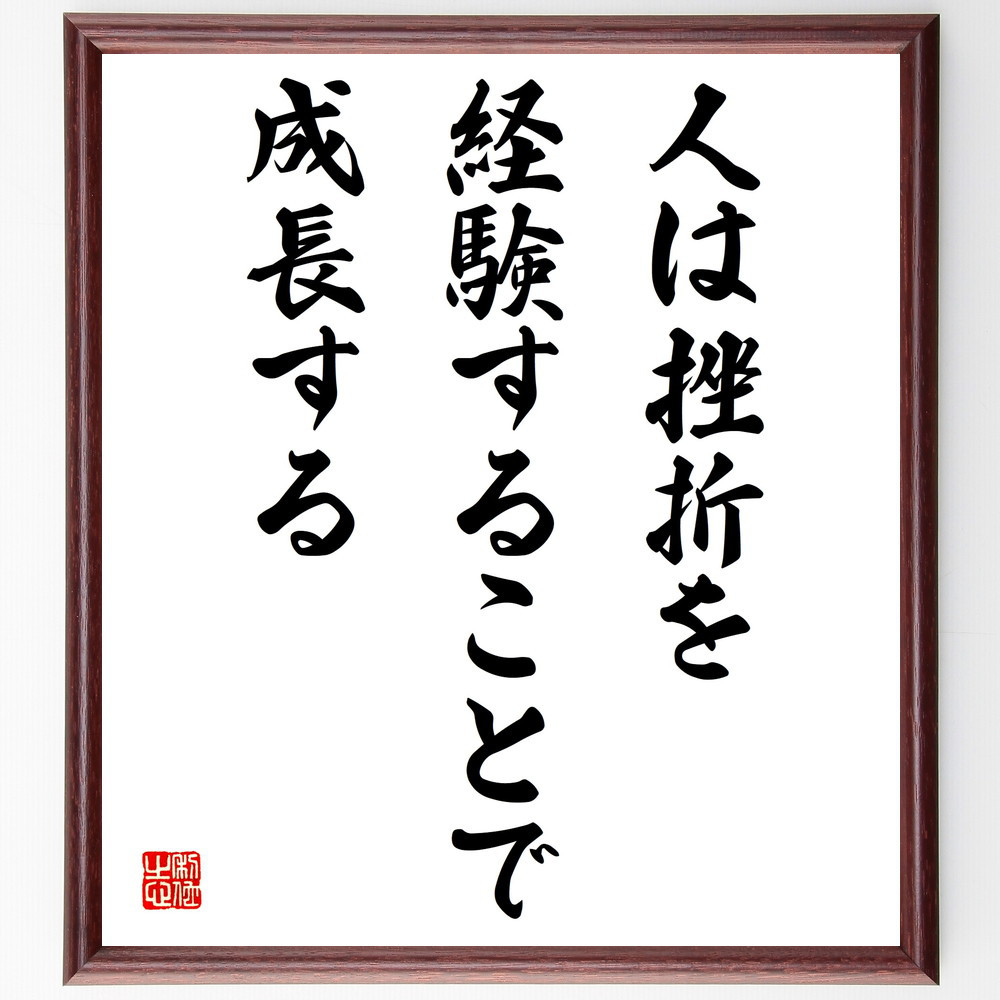 人は挫折を
経験することで
成長する